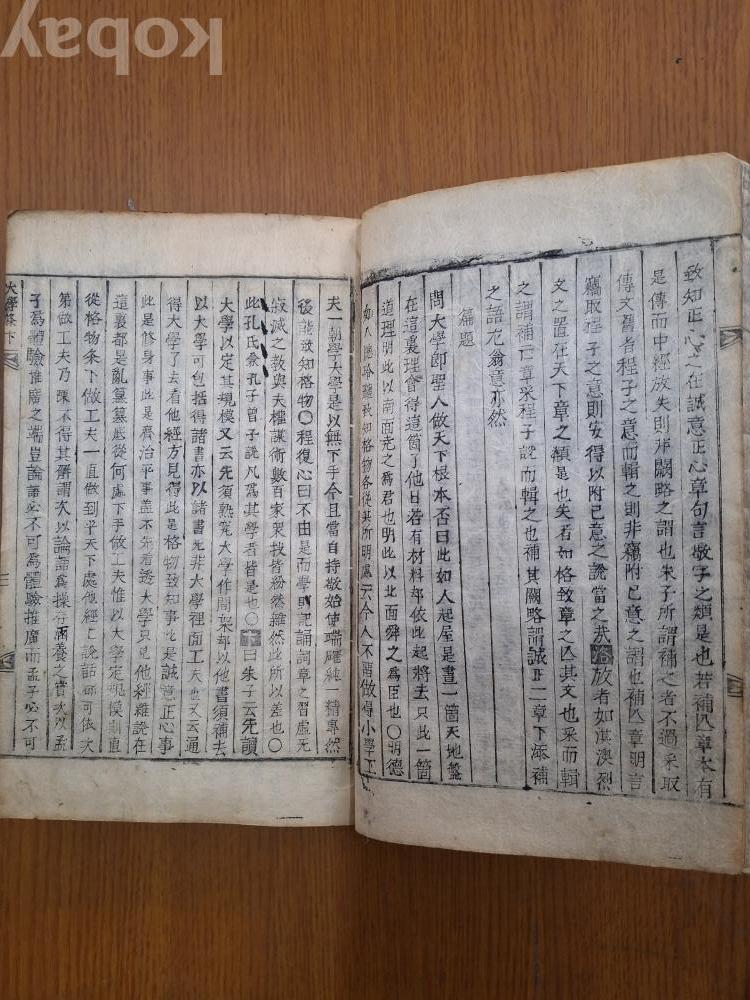 kobay
致知正心之在誠意正心章句言敬字之類是也若補亡章本有
是傳而中經放失則非闕略之謂也朱子所謂補之者不過采取
傳文舊者程子之意而輯之則非竊附已意之謂也補亡章明言
竊取程子之意則安得以附已意之說當之哉放者如淇澳烈
文之置在天下章之類是也失者如格致章之亡其文也采而輯
之謂補亡章采程子說而輯之也補其闕略謂誠正二章下添補
之語尤翁意亦然
篇題
問大學卽聖人做天下根本否曰此如人起屋是畫一箇天地盤
在這裏理會得這箇了他日若有材料却依此起將去只此一箇
道理明此以南面堯之爲君也明此以北面舜之爲臣也〇明德
如八窓玲瓏致知格物各從其所明處云今人不曾做得小學工
夫一朝學大學是以無下手今且當自持敬始使端確純一精專然
後能致知格物〇程復心曰不由是而學則記誦詞章之習虛无
寂滅之教與夫權謀術數百家衆技皆紛然雖然此所以差也〇
此孔氏兼孔子曾子說凡爲其學者皆是也〇曰朱子云先讀
大學以定其規模又云先須熟究大學作間架却以他書須補去
以大學可包括得諸書亦以諸書先非大學裡面工夫也又云通
得大學了去看他經方見得此是格物致知事此是誠意正心事
此是修身事此是齊治平事盖不先看透大學只見他經雜說在
這裏都是亂蔂蔂底從何處下手做工夫惟以大學定規模劃直
從格物条下做工夫一直做到平天下處他經上說話却可依次
第做工夫乃陳不得其解謂次以論語爲操存涵養之實次以孟
子爲體驗推廣之端豈論語必不可爲體驗推廣而孟子必不可
大學条下